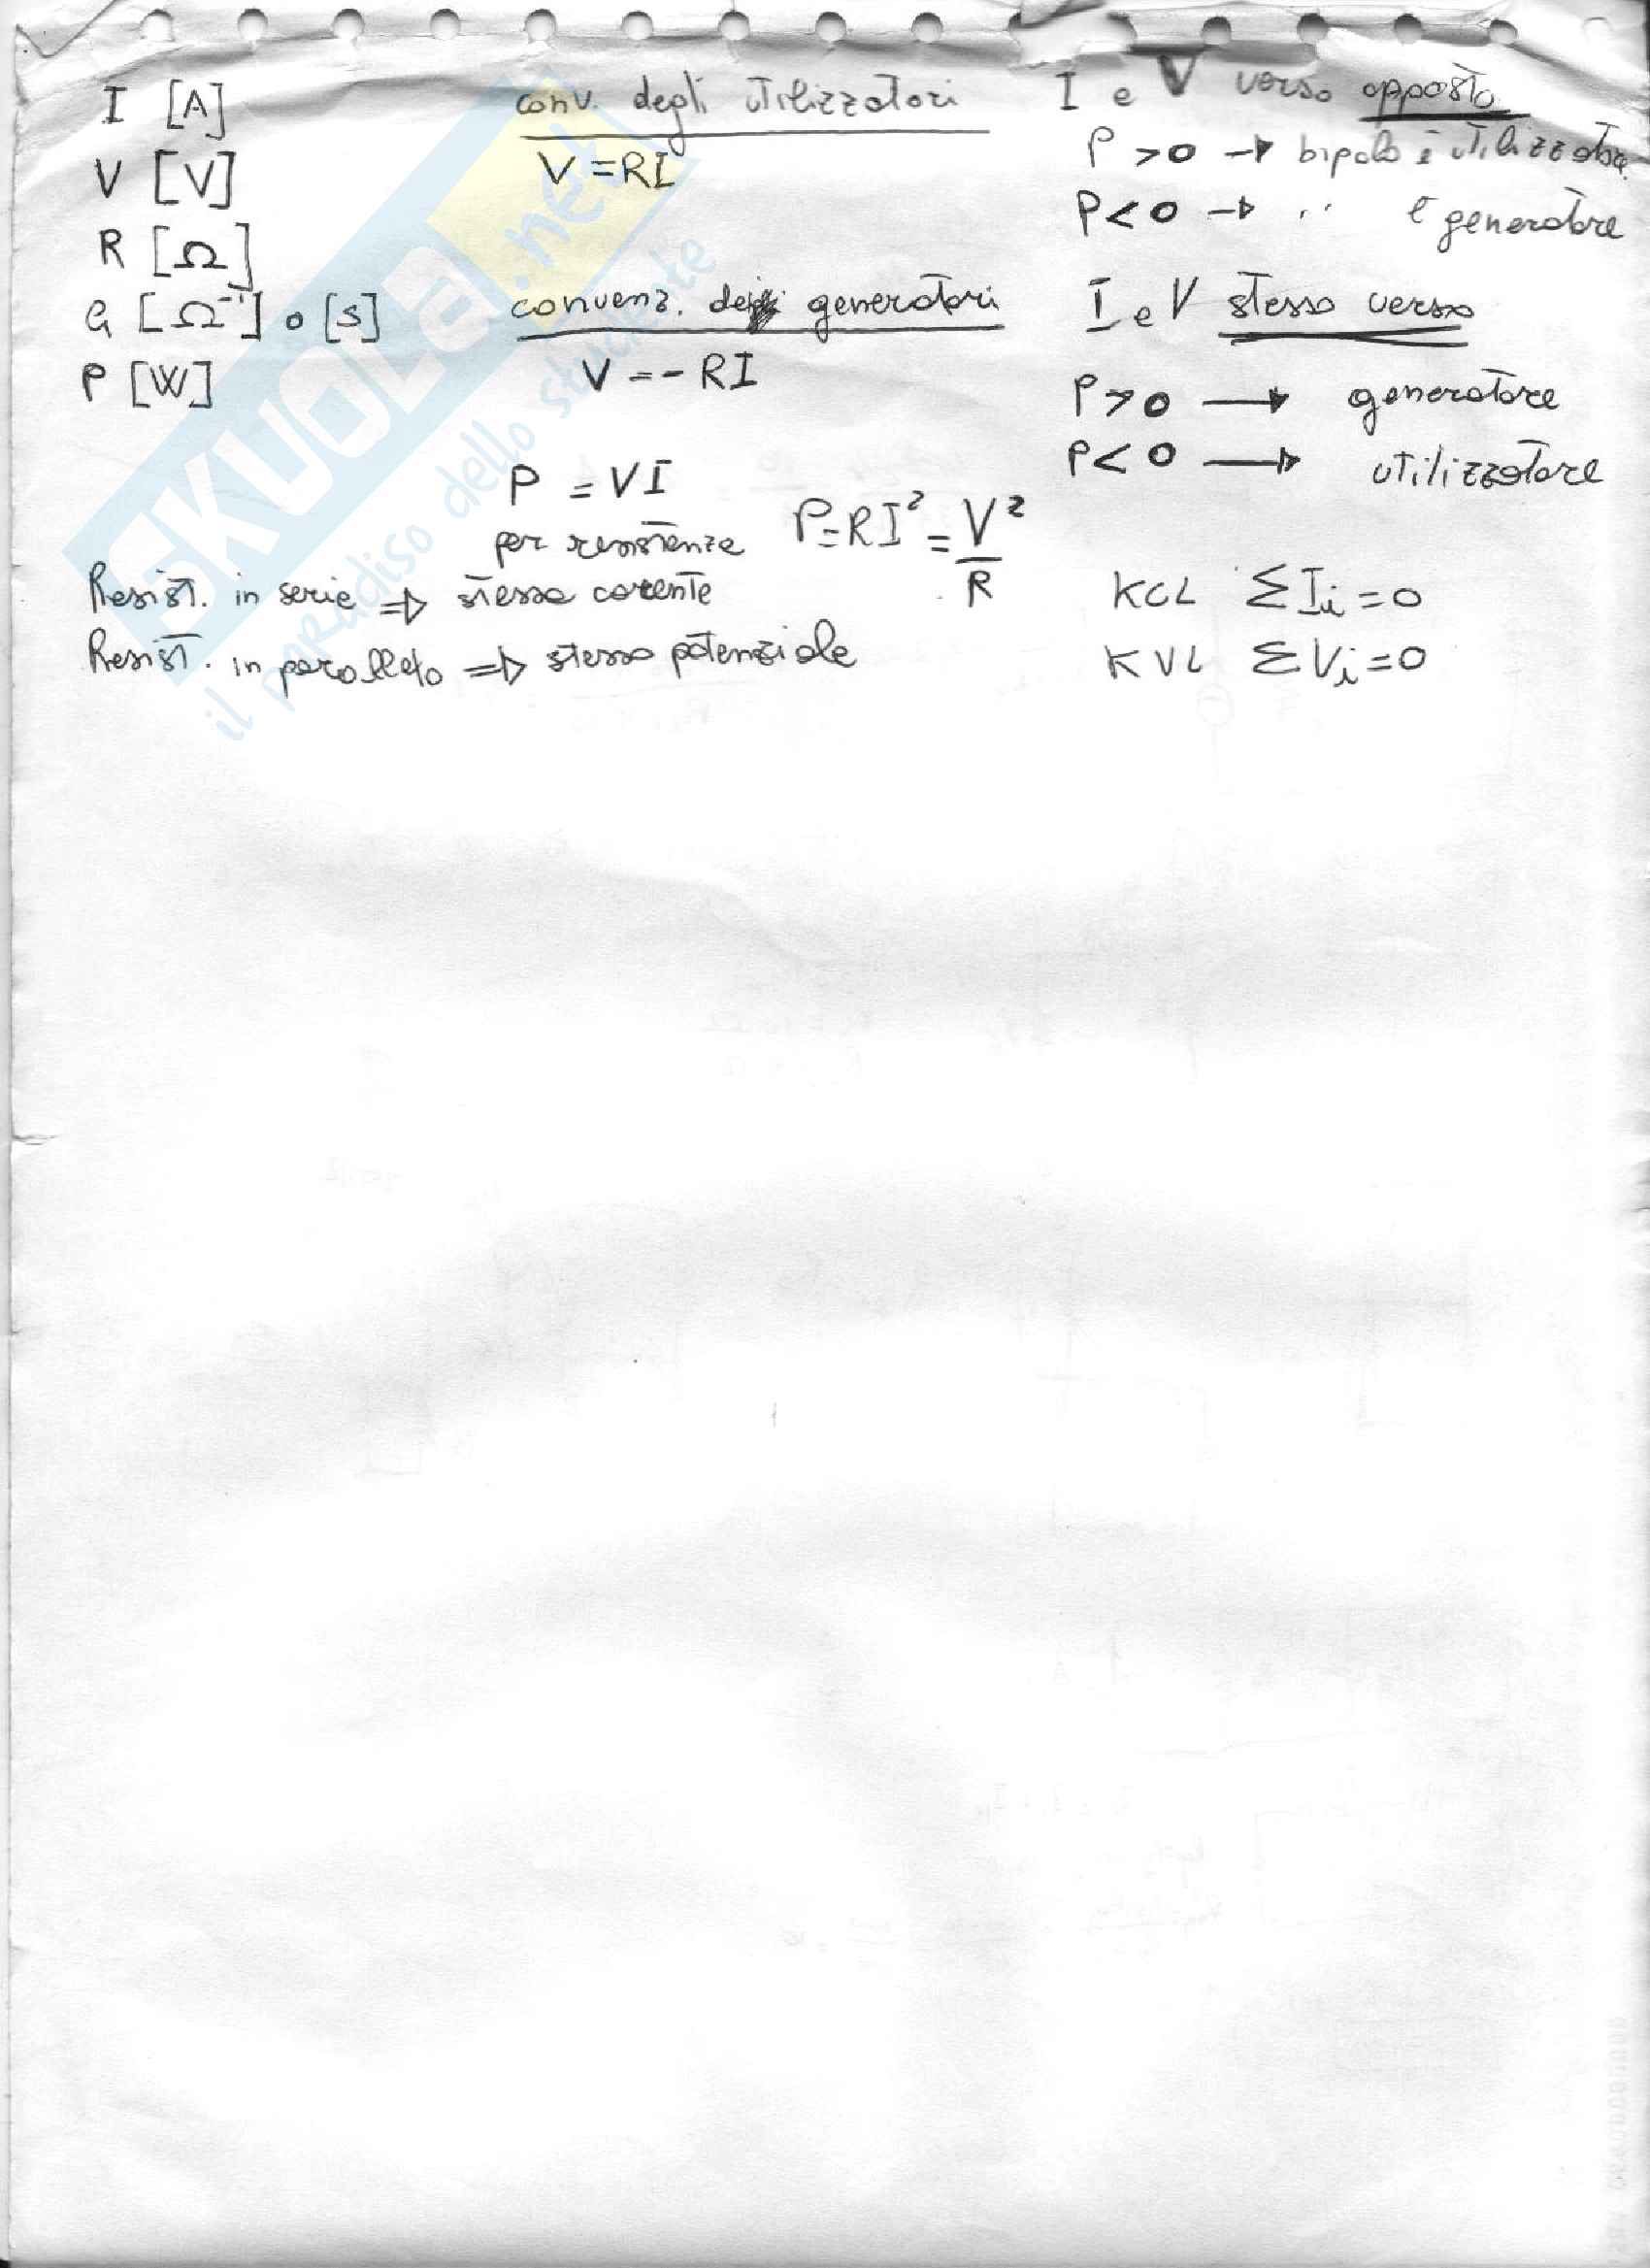 I [A]
V [V]
R [Ω]
G [Ω⁻¹] o [S]
P [W]
conv. degli utilizzatori
V = RI
convenz. dei generatori
V = - RI
I e V verso opposto
P > 0 → bipolo è utilizzatore
P < 0 → '' è generatore
I e V stesso verso
P > 0 → generatore
P < 0 → utilizzatore
P = VI
per resistenze P = RI² = V²/R
Resist. in serie ⇒ stessa corente
Resist. in parallelo ⇒ stesso potenziale
KCL ΣIi = 0
KVL ΣVi = 0
SKUOLA.net
il paradiso dello studente